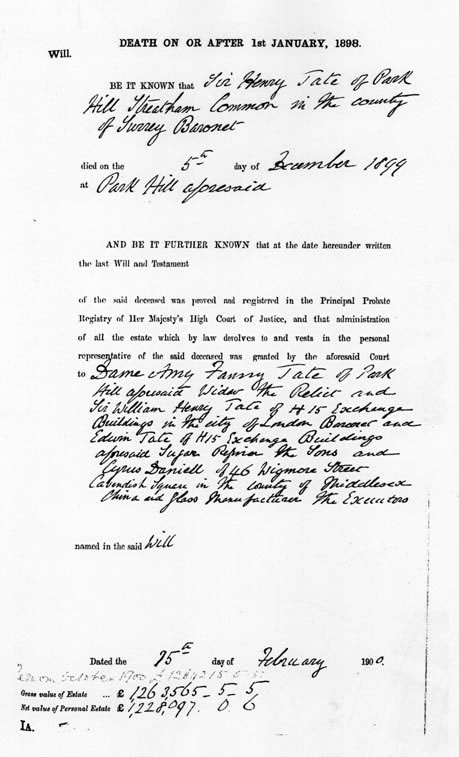 DEATH ON OR AFTER 1st JANUARY, 1898.
Will.
BE IT KNOWN that Sir Henry Tate of Park
Hill Streatham Common in the county
of Surrey Baronet
died on the 5th day of December 1899
at Park Hill aforesaid
AND BE IT FURTHER KNOWN that at the date hereunder written
the last Will and Testament
of the said deceased was proved and registered in the Principal Probate
Registry of Her Majesty's High Court of Justice, and that administration
of all the estate which by law devolves to and vests in the personal
representative of the said deceased was granted by the aforesaid Court
to Dame Amy Fanny Tate of Park
Hill aforesaid Widow the Relict and
Sir William Henry Tate of H 15 Exchange
Buildings in the city of London Baronet and
Edwin Tate of H15 Exchange Buildings
aforesaid Sugar Refiner the Sons and
Cyrus Daniell of 46 Wigmore Street
Cavendish Square in the county of Middlesex
China and Glass Manufacturer the Executors
named in the said Will
Dated the 15th day of February 1900.
October 1900 £
Gross value of Estate ... £ 1,263,565 - 5 - 5
Net value of Personal Estate £ 1,228,097. 0. 6
IA.